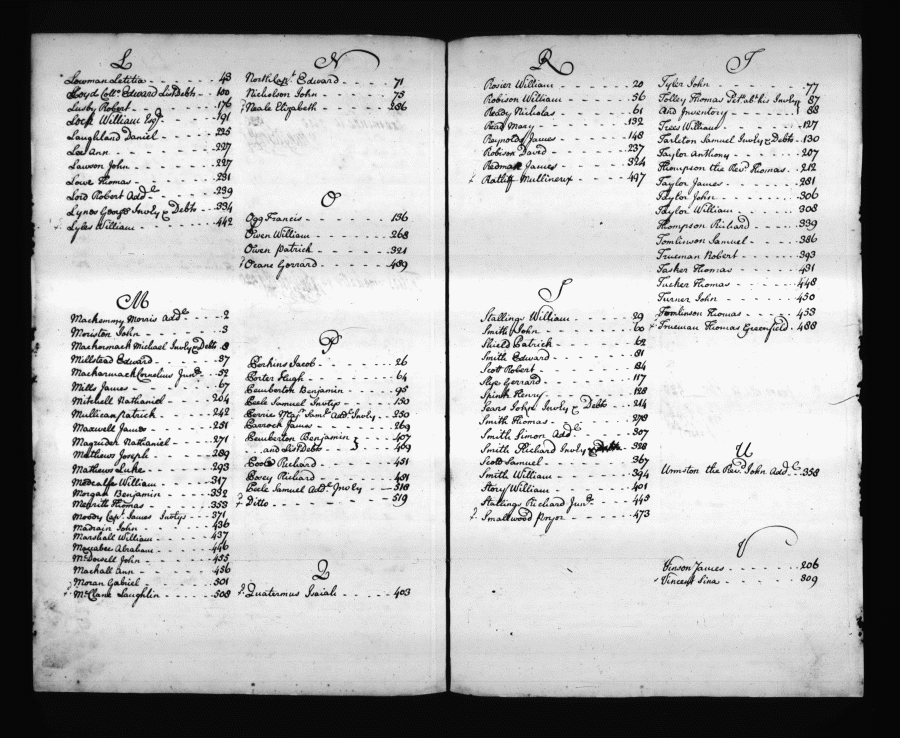 L
Lowman Letitia 43
Lloyd Coll.o Edward List Debts 100
Lusby Robert 176
Lock William Esq.r 191
Laughland Daniel 225
Lee Ann 227
Lawson John 227
Lowe Thomas 231
Lord Robert Add.l 239
Lynes George Invly & Debts 334
Lyles William 442
M
Mackemmy Morris Add.l 2
Moriston John 3
Mackormack Michael Invly & Debts 8
Millstead Edward 37
Mackormack Cornelius Jun.r 52
Mills James 67
Mitchell Nathaniel 204
Mullican Patrick 242
Maxwell James 251
Magruder Nathaniel 271
Mathews Joseph 289
Mathews Luke 293
Medcalfe William 317
Morgan Benjamin 332
Merritt Thomas 353
Moody Cap.t James Invtys 371
Madrain John 436
Marshall William 437
Maccabee Abraham 446
McDowell John 455
Machall Ann 456
Moran Gabriel 501
McClane Laughlin 508
N
North Cap.t Edward 71
Nicholson John 73
Neale Elizabeth 286
O
Ogg Francis 136
Owen William 268
Owen Patrick 321
Oeane Gerrard 439
P
Perkins Jacob 26
Porter Hugh 64
Pemberton Benjamin 95
Peele Samuel Invtys 150
Perrie Maj.r Sam.l Add.l Invly 250
Parrock James 269
Pemberton Benjamin 407
and List Debts 409
Poole Richard 451
Posey Richard 451
Peele Samuel Add.l Invly 510
Ditto 519
Q
Quatermus Isaiah 403
R
Rosier William 20
Robison William 56
Ready Nicholas 61
Read Mary 132
Reynolds James 148
Robison David 237
Redman James 324
Ratliff Multinerux 497
S
Stallings William 29
Smith John 60
Shield Patrick 62
Smith Edward 81
Scott Robert 84
Slye Gerrard 117
Spink Henry 128
Sears John Invly & Debts 214
Smith Thomas 278
Smith Simon Add.l 307
Smith Richard Invly & 328
Scott Samuel 367
Smith William 394
Story William 401
Stallings Richard Jun.r 445
Smallwood Pryor 473
T
Tyler John 77
Tolley Thomas Pet.n ab.t his Invly 87
And Inventory 88
Trees William 127
Tarleton Samuel Invly & Debts 130
Taylor Anthony 207
Thompson the Rev.d Thomas 212
Taylor James 281
Taylor John 306
Taylor William 308
Thompson Richard 339
Tomlinson Samuel 386
Trueman Robert 393
Tasker Thomas 431
Tucker Thomas 448
Turner John 450
Tomlinson Thomas 453
Trueman Thomas Greenfield 488
U
Urmston the Rev.d John Add.l 358
V
Vinson James 206
Vincent Sina 309